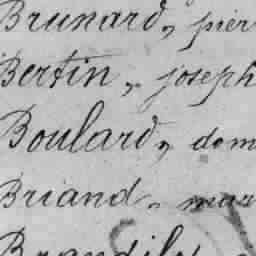 Brunard, pier
Bertin, joseph
Boulard, dom
Briand, mar